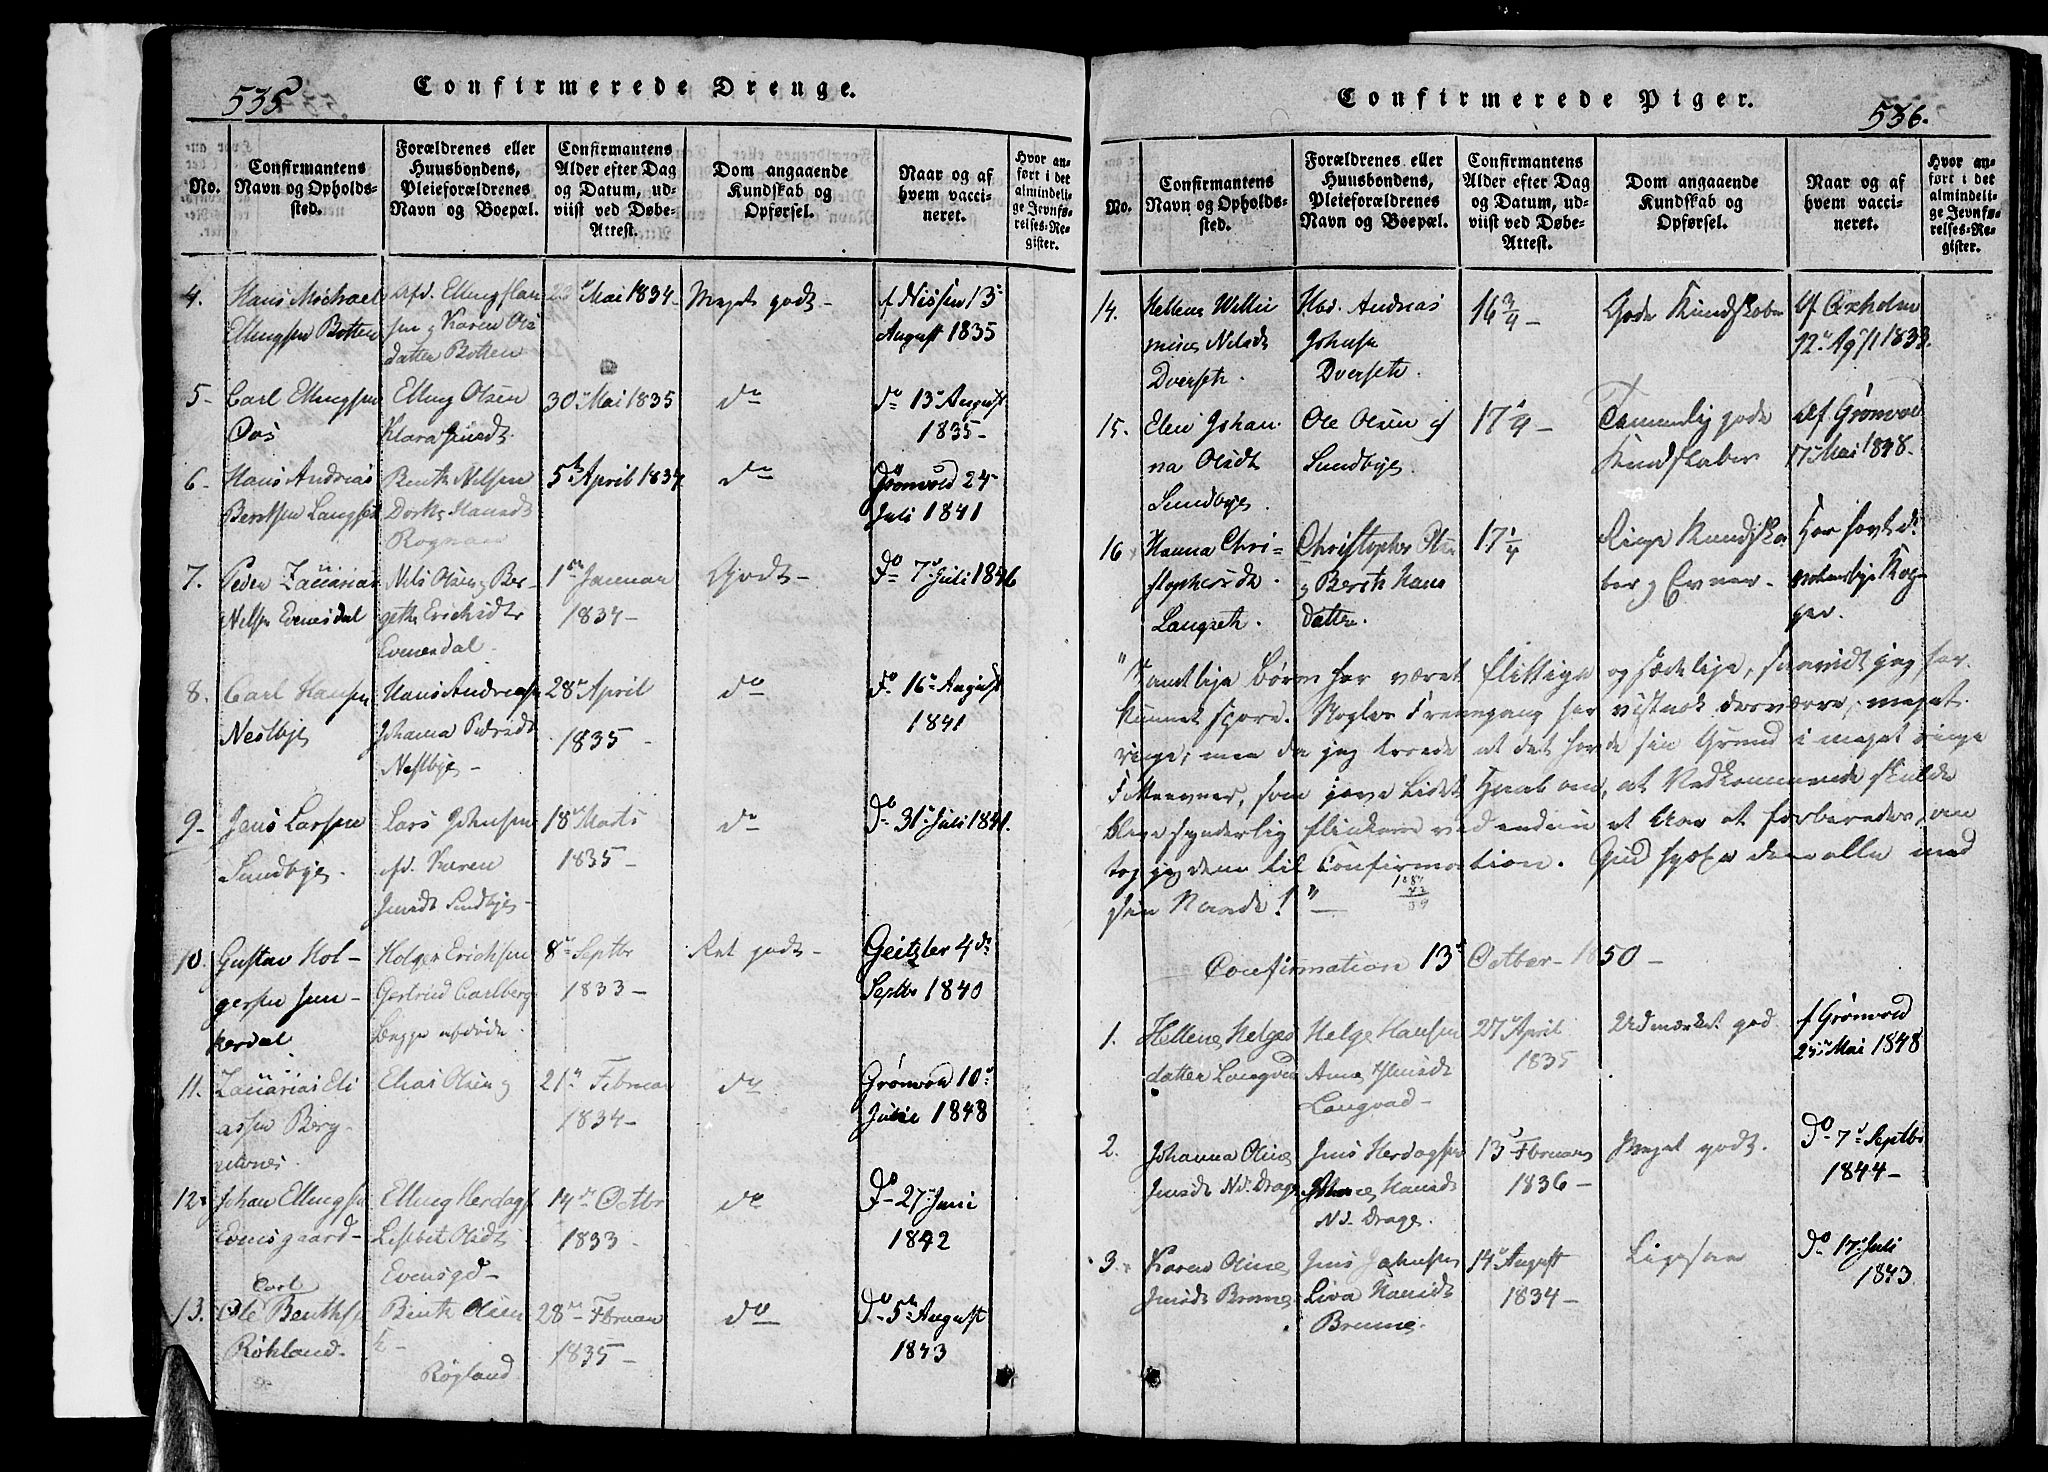 535
Confirmerede Drenge.
No.
Confirmantens
Navn og Opholds-
sted.
Forældrenes eller
Huusbondens,
Pleieforældrenes
Navn og Boepæl.
Confirmantens
Alder efter Dag
og Datum, ud-
viist ved Døbe-
Attest.
Dom angaaende
Kundskab og
Opførsel.
Naar og af
hvem vacci-
neret.
Hvor an-
ført i det
almindeli-
ge Jevnfø-
relses-Re-
gister.
4. Hans Michael
Ellingsen Botten
Karen Ols
datter Botten
Mai 1834
Meget godt
Nissen 13
August 1835
5 Carl Ellingsen
Elling Olsen
Klara
30 Mai 1835
do
do 13 August
1835
6 Hans Andreas
Berntsen
Bernth Nilsen
Hansdt
Rognan
5te April 1834
do
Grønvold 24
Juli 1841
7. Peder Zacarias
Nilsen Evensdal
Nils Olsen og Ber-
gethe Erichsdtr
Evensdal
1ste Januar
1834
Godt
do 7 Juli 1846
8. Carl Hansen
Nestbye
Hans Andreasen
Johanna Pedersdt
Nestbye
28 April
1835
do
do 16 August
1841
9 Jens Larsen
Sundbye
Lars Johnsen
Karen
Jensdt Sundbye
18 Marts
1835
do
do 31 Juli 1841.
10. Gustav Hol-
gersen Jun-
kerdal
Holger Erichsen
Gertrud Carlberg
begge afdøde.
8 Septbr
1833
Ret godt
Geitzler 4de
Septbr 1840
11. Zacarias Eli
assen Berg-
ulvnes.
Elias Olsen og
21 Februar
1834
do
Grønvold 10
1848
12 Johan Ellingsen
Evensgaard
Elling Herdags
Lisbet Olsdt
Evensgd
14 Octbr
1833
do
do 27 Juni
1842
13. Carl
Ole Benths
Røkland
Bent Olsen
Røgland
28 Februar
1835
do
do 5te August
1843
Confirmerede Piger.
536.
No.
Confirmantens
Navn og Opholds-
sted.
Forældrenes eller
Huusbondens,
Pleieforældrenes
Navn og Boepæl.
Confirmantens
Alder efter Dag
og Datum, ud-
viist ved Døbe-
Attest.
Dom angaaende
Kundskab og
Opførsel.
Naar og af
hvem vacci-
neret.
Hvor an-
ført i det
almindeli-
ge Jevnfø-
relses-Re-
gister.
14. Hellena Wille
mine Nilsdt
Dverseth.
Andreas
Johnsen
Dverseth.
16 3/4
Gode Kundskaber
Af Oxholm
1833.
15. Elen Johan
na Olsdt
Sundbye
Ole Olsen
Sundbye
17 1/4
Temmelig gode
Kundskaber
Af Grønvold
17 Mai 1848.
16 Hanna Chri-
stophersdt
Langseth.
Christopher Olsen
og Bereth Hans
datter.
17 1/4
Ringe Kundska
ber og Evner.
Har havt de
naturlige Kop-
per.
"Samtlige Børn har været flittige og sædelige, saavidt jeg har
kunnet spore. Nogles Fremgang har vistnok desværre, meget
ringe; men da jeg troede at det havde sin Grund i meget ringe
Fatteevner, som gave lidet Haab om, at Vedkommende skulde
blive synderlig flinkere ved endnu et Aar at forberedes, an
tog jeg dem til Confirmation. Gud hjelpe dem alle med
sin Naade!"
Confirmation 13 October 1850
1. Hellene Helges
datter Langvad
Helge Hansen
Anne Jensdt
Langvad
27 April
1835
Udmærket god
f Grønvold
25 Mai 1848
2. Johanna Oline
Jensdt Nd. Drage
Jens Herdagsen
Hansdt
Nd. Drage.
13 Februar
1836
Meget godt.
do 7 Septbr
1844
3. Karen Oline
Jensdt Brenne
Jens Johnsen
Liva Hansdt
Brenne.
14 August
1834
Ligesaa
do 17 Juli
1843